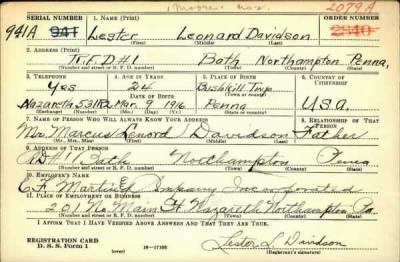 Moore
2079A
SERIAL NUMBER 1. NAME (Print) ORDER NUMBER
941A 941 Lester Leonard Davidson 2040
(First) (Middle) (Last)
2. ADDRESS (Print)
R.F.D#1 Bath Northampton Penna,
(Number and street or R. F. D. number) (Town) (County) (State)
3. TELEPHONE 4. AGE IN YEARS 5. PLACE OF BIRTH 6. COUNTRY OF CITIZENSHIP
Yes 24 Bushkill Twp.
(Town or county)
DATE OF BIRTH
Nazareth Mar. 9, 1916 Penna U.S.A.
(Exchange) (Number) (Mo.) (Day) (Yr.) (State or country)
7. NAME OF PERSON WHO WILL ALWAYS KNOW YOUR ADDRESS 8. RELATIONSHIP OF THAT PERSON
Mr. Marcus Lenord Davidson Father
(Mr., Mrs., Miss) (First) (Middle) (Last)
9. ADDRESS OF THAT PERSON
RD#1 Bath Northampton Penna
(Number and street or R. F. D. number) (Town) (County) (State)
10. EMPLOYER'S NAME
C.F. Martin & Company Incorporated
11. PLACE OF EMPLOYMENT OR BUSINESS
201 No Main St. Nazareth Northampton Pa
(Number and street or R. F. D. number) (Town) (County) (State)
I AFFIRM THAT I HAVE VERIFIED ABOVE ANSWERS AND THAT THEY ARE TRUE.
REGISTRATION CARD
D. S. S. Form 1 (over) 16—17105 Lester L. Davidson
(Registrant's signature)